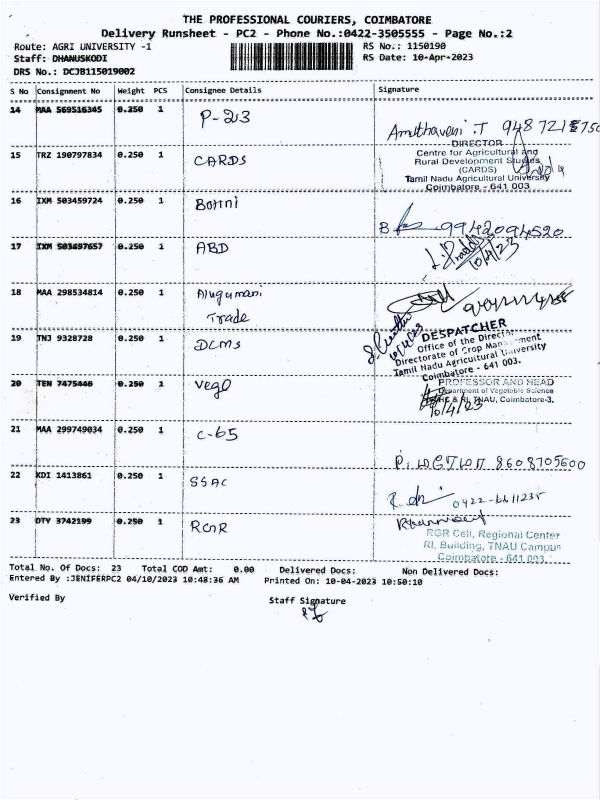 THE PROFESSIONAL COURIERS, COIMBATORE
Delivery Runsheet - PC2 - Phone No.:0422-3505555 - Page No.:2
Route: AGRI UNIVERSITY -1
RS No.: 1150190
Staff: DHANUSKODI
RS Date: 10-Apr-2023
DRS No.: DCJB115019002
S No Consignment No Weight PCS Consignee Details Signature
14 MAA 569516345 0.250 1 P-213
Amuthaveni .T
DIRECTOR
15 TRZ 190797834 0.250 1 CARDS
Centre for Agricultural and
Rural Development Studies
(CARDS)
Tamil Nadu Agricultural University
Coimbatore - 641 003
16 IXM 503459724 0.250 1
9942094520
17 IXM 503497657 0.250 1 ABD
10/4/23
18 MAA 298534814 0.250 1
Trade
19 TNJ 9328728 0.250 1 DCMS
DESPATCHER
Office of the Director
Directorate of Crop Management
Tamil Nadu Agricultural University
Coimbatore - 641 003.
20 TEN 7475446 0.250 1 vego
PROFESSOR AND HEAD
Department of Vegetable Science
TNAU, Coimbatore-3.
10/4/23
21 MAA 299749034 0.250 1 C-65
8608705600
22 KDI 1413861 0.250 1 SSAC
0422-6611235
23 DTY 3742199 0.250 1 RGR
RGR Cell, Regional Center
RI, Building, TNAU Campus
Coimbatore - 641 003
Total No. Of Docs: 23 Total COD Amt: 0.00 Delivered Docs: Non Delivered Docs:
Entered By :JENIFERPC2 04/10/2023 10:48:36 AM Printed On: 10-04-2023 10:50:10
Verified By Staff Signature